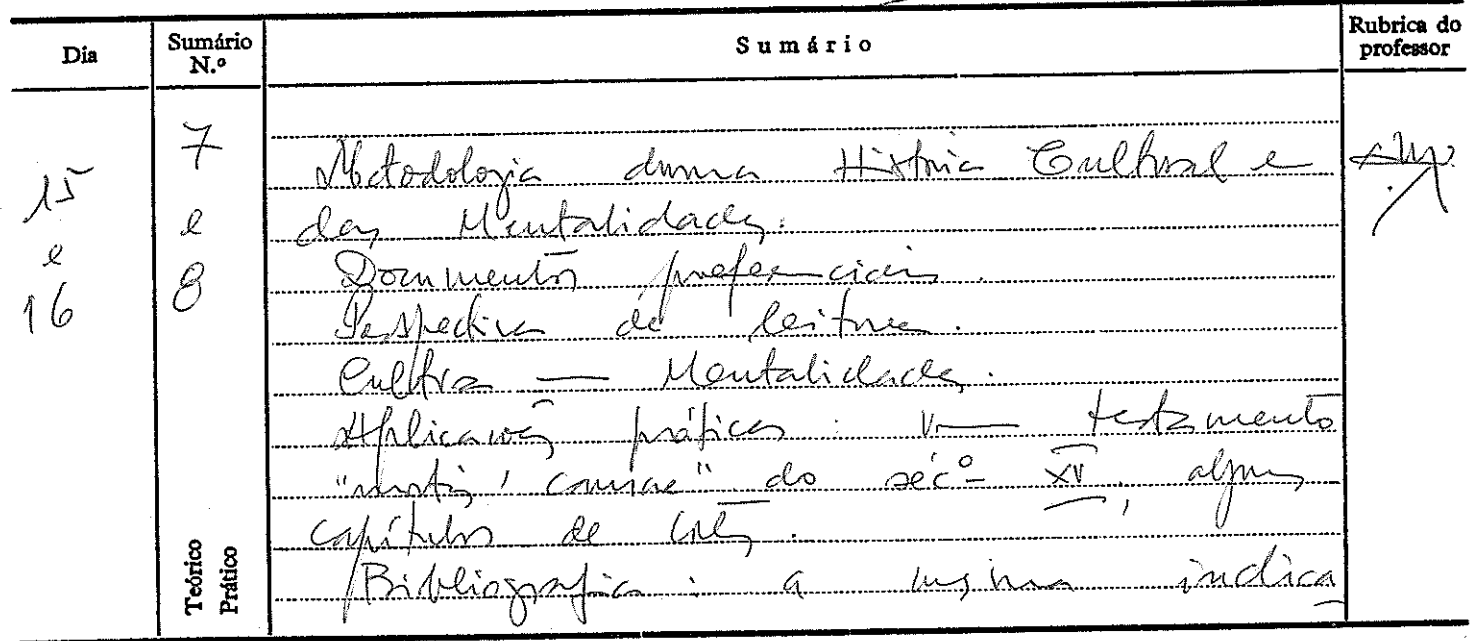 Dia Sumário N.º Sumário Rubrica do professor
15 e 16
7 e 8
Metodologia duma História Cultural e
das Mentalidades.
Documentos preferenciais.
Perspectiva de leitura.
Cultura — Mentalidades.
Aplicações práticas: um testamento
"mortis causae" do séc.º XV, alguns
capítulos de Cortes.
Bibliografia: a mesma indica
Teórico
Prático